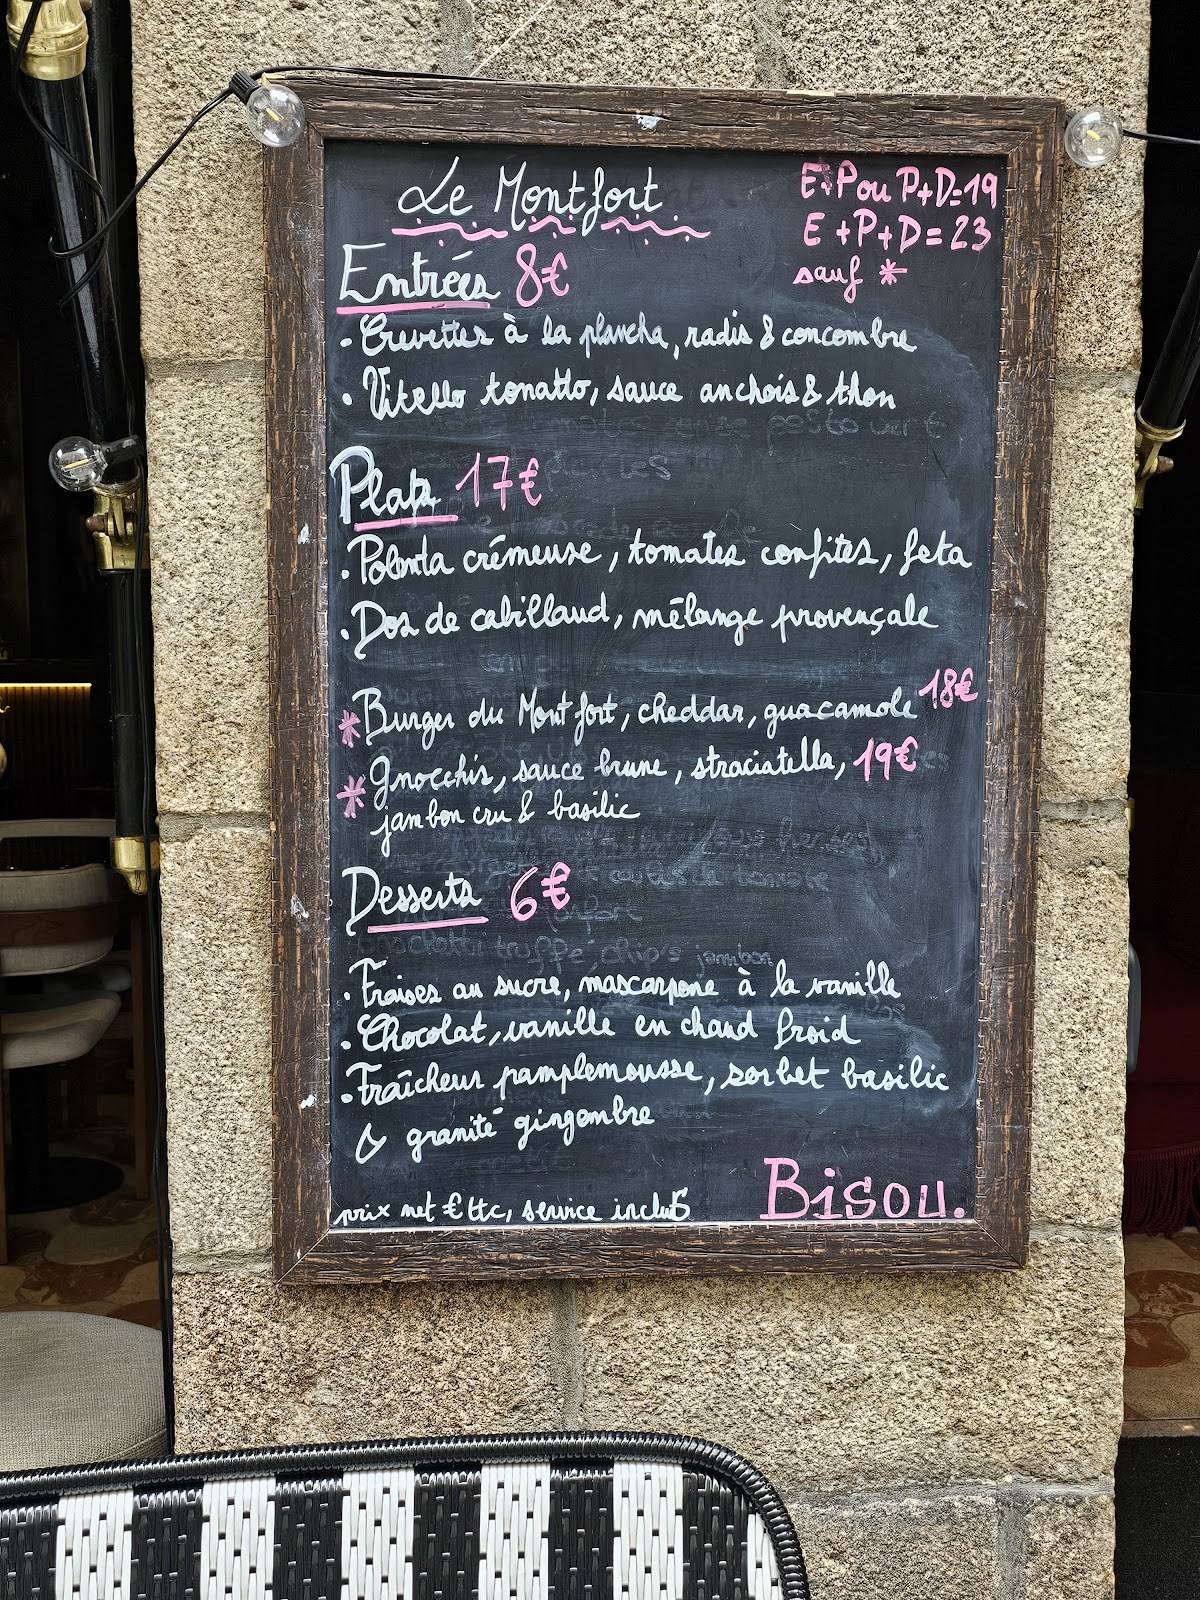 Le Montfort
E+P ou P+D=19
E+P+D=23
sauf *
Entrées 8€
• Crevettes à la plancha, radis & concombre
• Vitello tonatto, sauce anchois & thon
Plats 17€
• Polenta crémeuse, tomates confites, feta
• Dos de cabillaud, mélange provençale
* Burger du Montfort, cheddar, guacamole 18€
* Gnocchis, sauce brune, straciatella, 19€
jambon cru & basilic
Desserts 6€
• Fraises au sucre, mascarpone à la vanille
• Chocolat, vanille en chaud froid
• Fraîcheur pamplemousse, sorbet basilic
& granité gingembre
prix net € ttc, service inclus
Bisou.